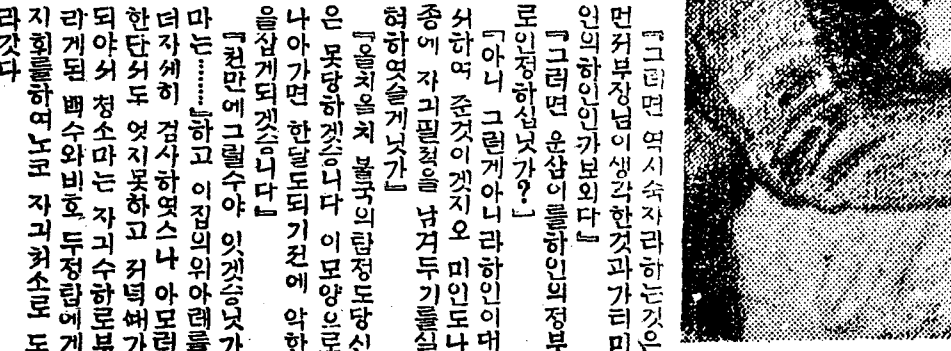 『그러면 역시숙자라하는것은
먼저부장님이생각한것과가티미
인의하인인가보외다』
『그러면 운삽이를하인의정부
로인정하십닛가?』
『아니 그런게아니라하인이대
서하여 준것이겟지오 미인도나
종에 자긔필적을 남겨두기를실
혀하엿슬게닛가』
『올치올치 불국의탐정도당신
은 못당하겟슴니다 이모양으로
나아가면 한달도되기전에 악한
을삽게되겟슴니다』
『천만에그럴수야 잇겟슴닛가
마는………』하고 이집의위아래를
더자세히 검사하엿스나 아모런
한단서도 엇지못하고 저녁때가
되야서 청소마는 자긔수하로부
리게된 백수와비호 두정탐에게
지회를하여노코 자긔처소로 도
라갓다